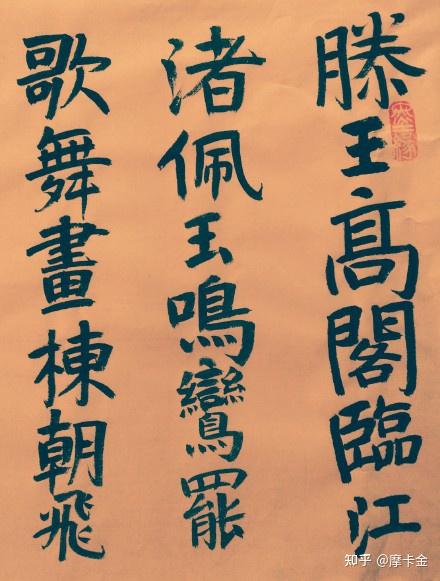 滕王高閣臨江
渚佩玉鳴鸞罷
歌舞畫棟朝飛
知乎 @摩卡金